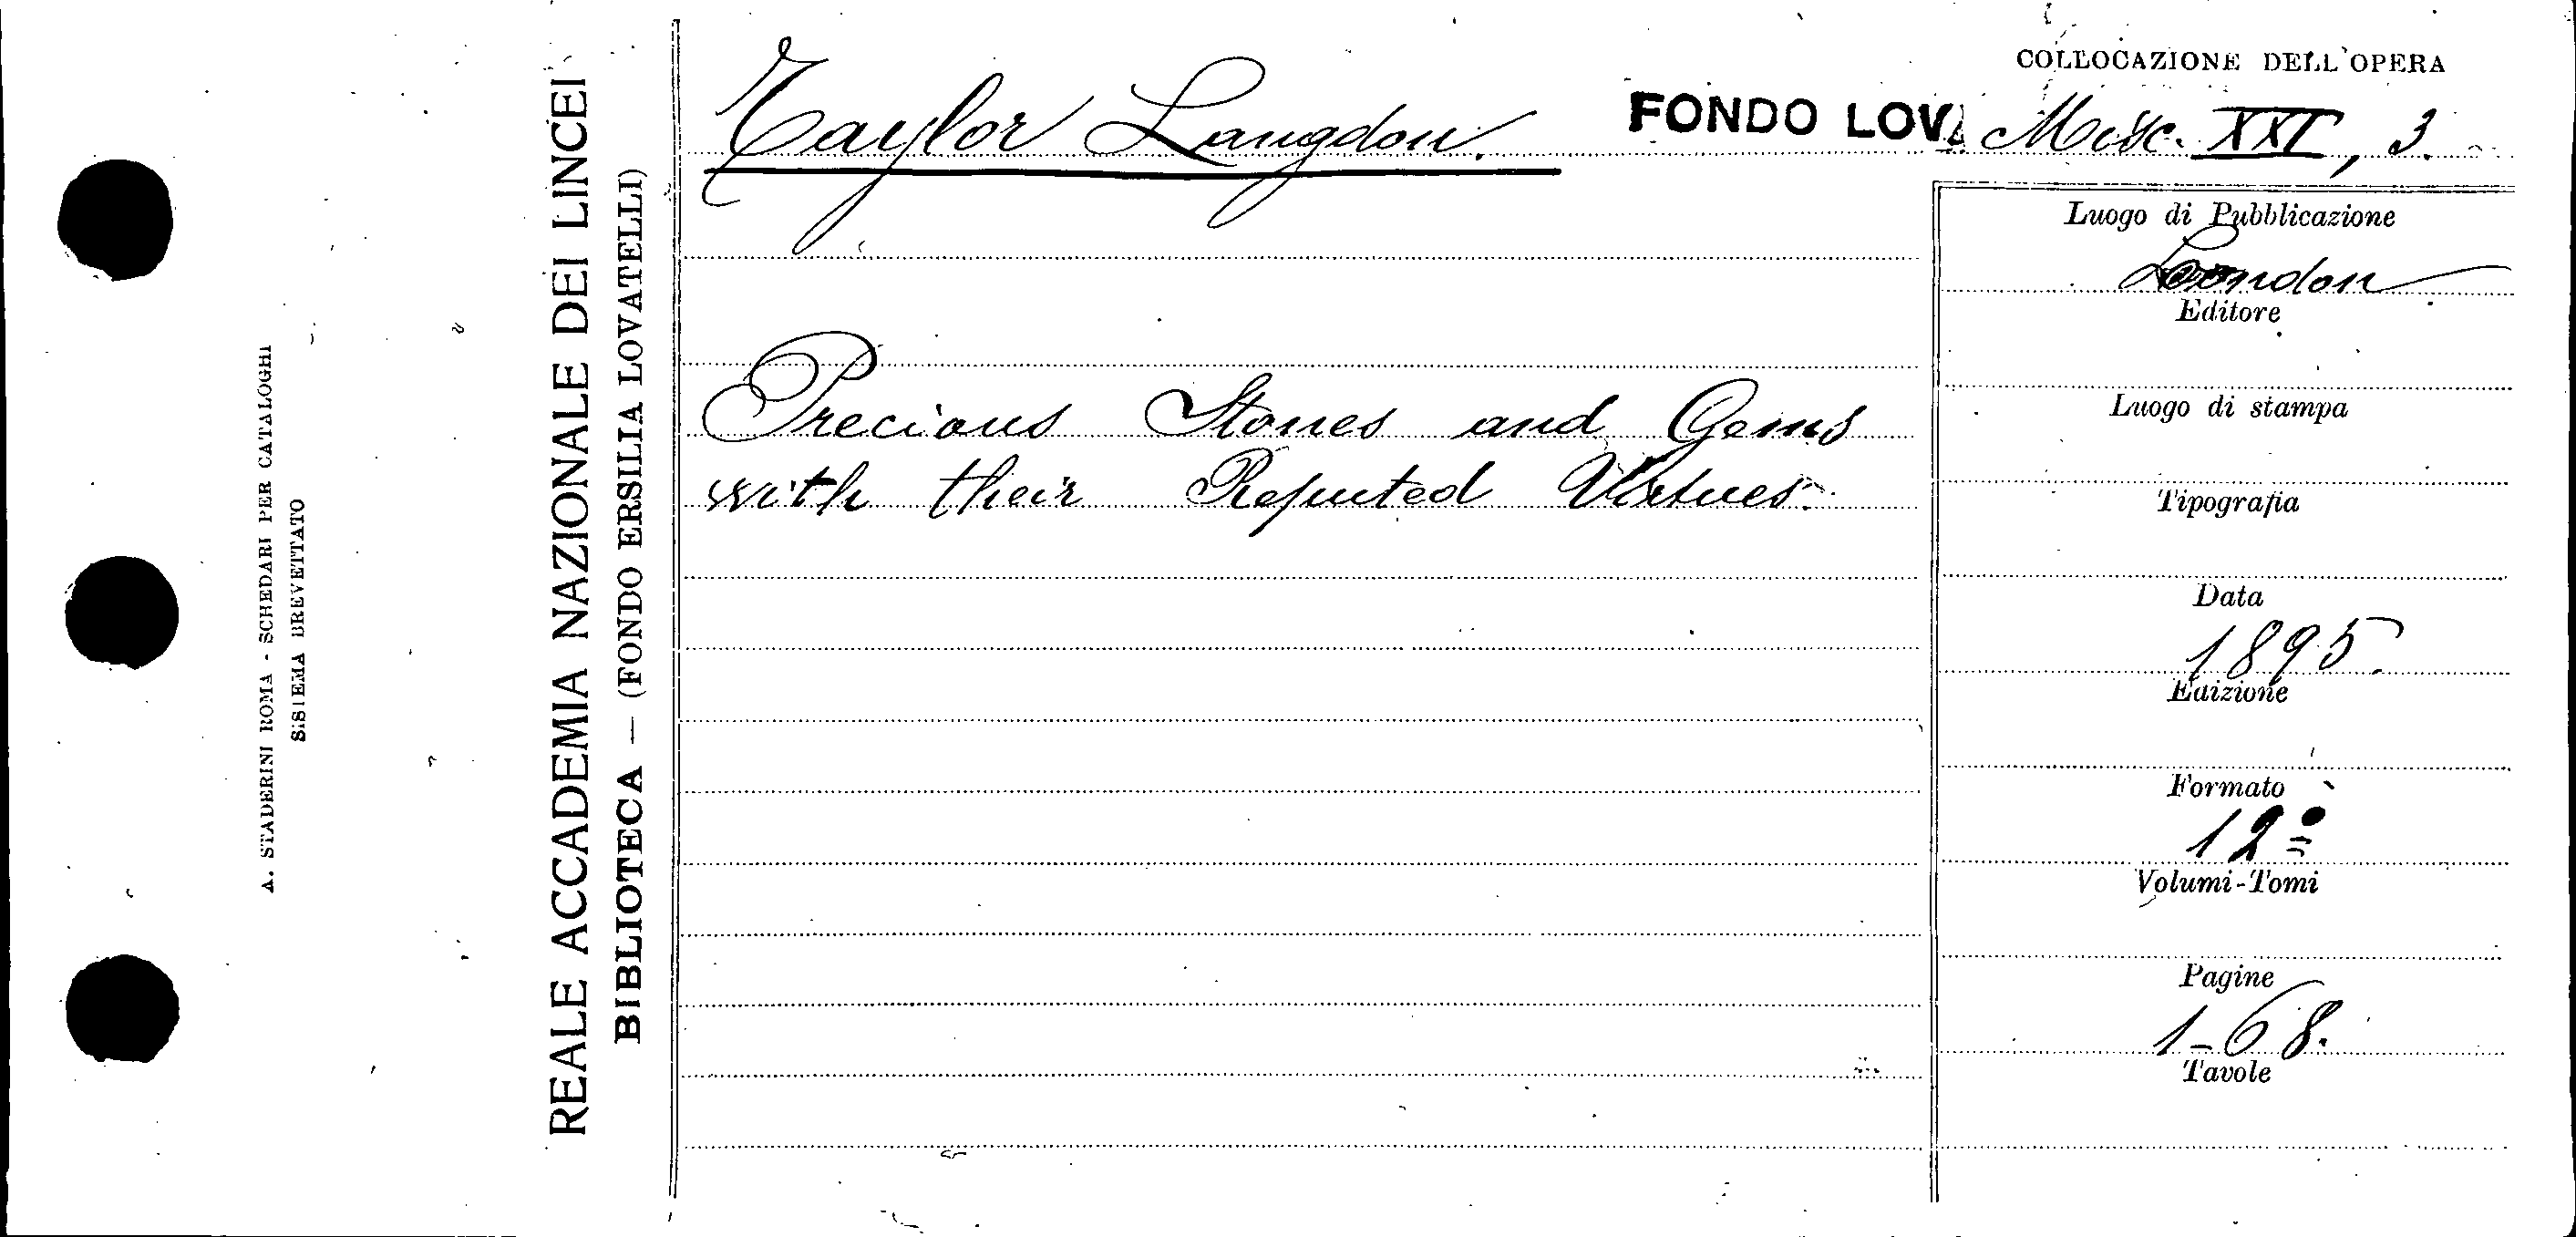 COLLOCAZIONE DELL'OPERA
Taylor Langdon.
FONDO LOV. Misc. XXI, 3.
Precious Stones and Gems
with their Reputed Virtues.
Luogo di Pubblicazione
London
Editore
Luogo di stampa
Tipografia
Data
1895.
Edizione
Formato
12º
Volumi-Tomi
Pagine
1-68.
Tavole
REALE ACCADEMIA NAZIONALE DEI LINCEI
BIBLIOTECA — (FONDO ERSILIA LOVATELLI)
A. STADERINI ROMA - SCHEDARI PER CATALOGHI
SISTEMA BREVETTATO